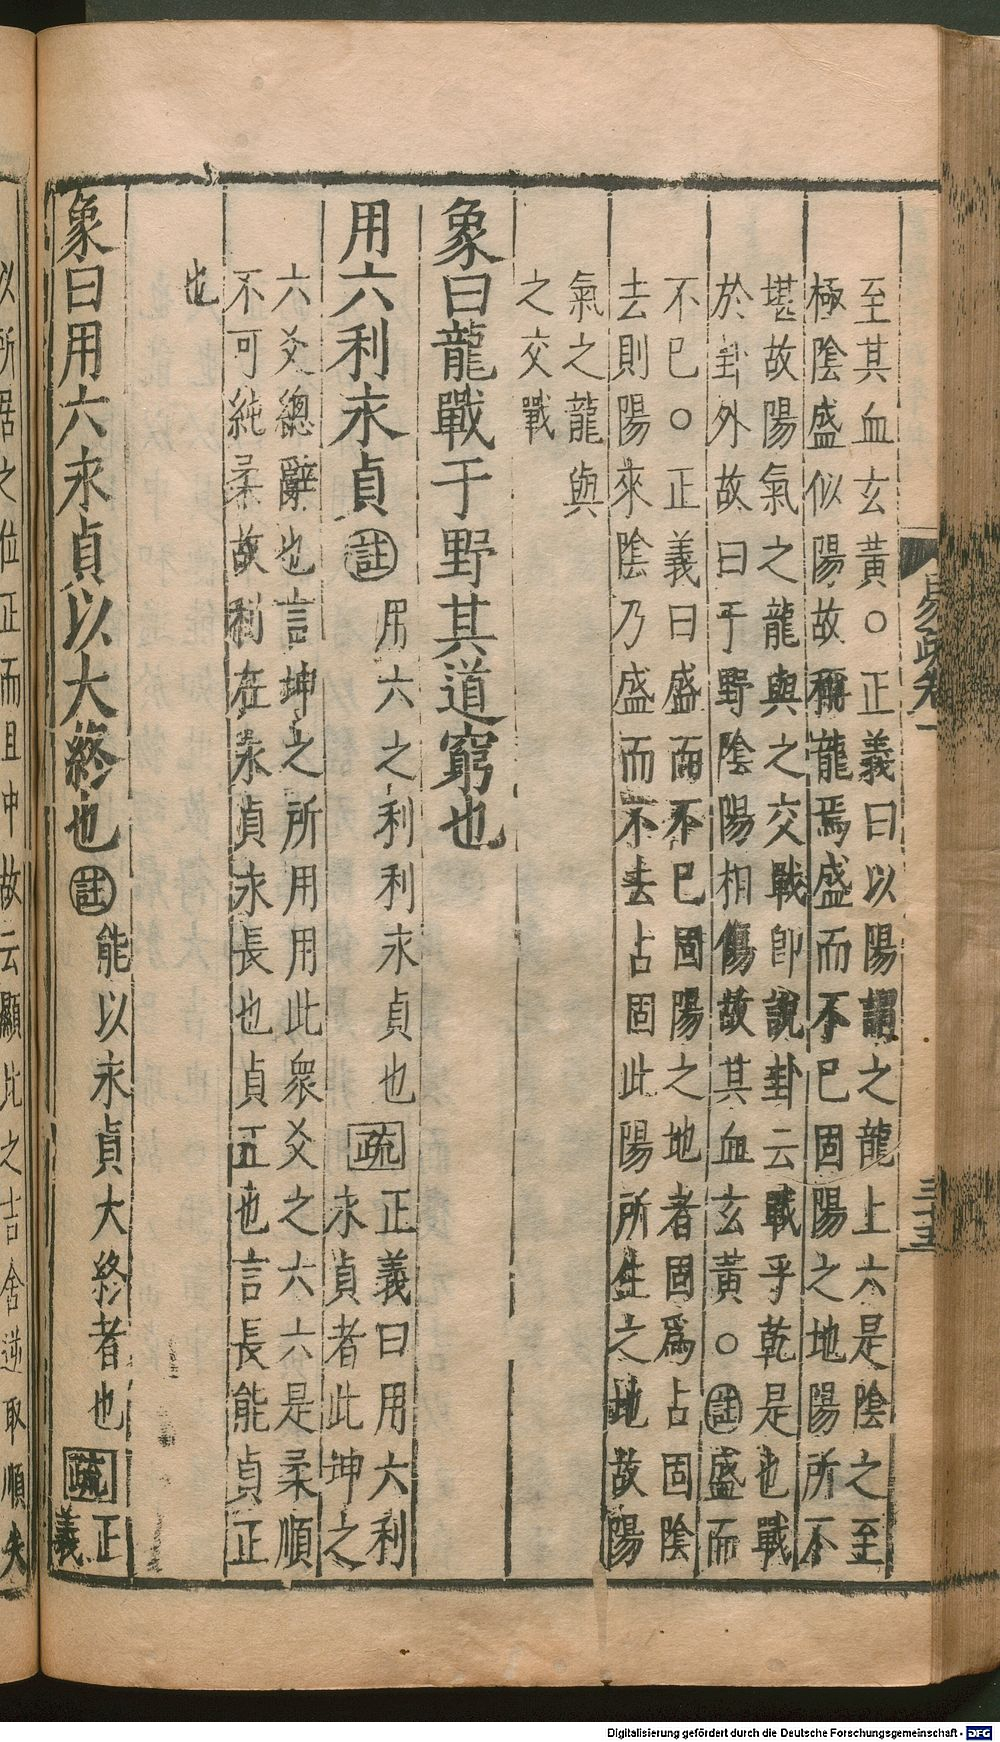 至其血玄黃○正義曰以陽謂之龍上六是陰之至
極陰盛似陽故稱龍焉盛而不已固陽之地陽所不
堪故陽氣之龍與之交戰卽說卦云戰乎乾是也戰
於卦外故曰于野陰陽相傷故其血玄黃○註盛而
不已○正義曰盛而不已固陽之地者固爲占固陰
去則陽來陰乃盛而不去占固此陽所生之地故陽
氣之龍與
之交戰
象曰龍戰于野其道窮也
用六利永貞註用六之利利永貞也疏正義曰用六利
永貞者此坤之
六爻總辭也言坤之所用用此衆爻之六六是柔順
不可純柔故利在永貞永長也貞正也言長能貞正
也
象曰用六永貞以大終也註能以永貞大終者也疏正
義
以所居之位正而且中故云顯比之吉舍逆取順失
易疏卷一
三十五
Digitalisierung gefördert durch die Deutsche Forschungsgemeinschaft - DFG